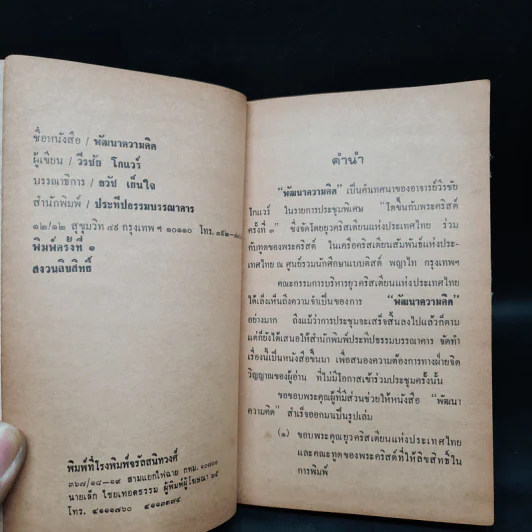 ชื่อหนังสือ / พัฒนาความคิด
ผู้เขียน / วีรชัย โกแวร์
บรรณาธิการ / ธวัช เย็นใจ
สำนักพิมพ์ / ประทีปธรรมบรรณาคาร
๑๒/๑๒ สุขุมวิท ๔๕ กรุงเทพฯ ๑๐๑๑๐ โทร.
พิมพ์ครั้งที่ ๑
สงวนลิขสิทธิ์
พิมพ์ที่โรงพิมพ์จรัลสนิทวงศ์
๓๖๗/๑๘–๑๙ สามแยกไฟฉาย กทม. ๑๐๗๐๐
นายเล็ก ไชยเทอดธรรม ผู้พิมพ์ผู้โฆษณา ๒๕
โทร. ๔๑๑๑๗๖๐
คำนำ
“พัฒนาความคิด” เป็นคำเทศนาของอาจารย์วีรชัย
โกแวร์ ในรายการประชุมพิเศษ “โตขึ้นกับพระคริสต์
ครั้งที่ ๓” ซึ่งจัดโดยยุวคริสเตียนแห่งประเทศไทย ร่วม
กับทูตของพระคริสต์ ในเครือคริสเตียนสัมพันธ์แห่งประ-
เทศไทย ณ ศูนย์รวมนักศึกษาแบบติสต์ พญาไท กรุงเทพฯ
คณะกรรมการบริหารยุวคริสเตียนแห่งประเทศไทย
ได้เล็งเห็นถึงความจำเป็นของการ “พัฒนาความคิด”
อย่างมาก ถึงแม้ว่าการประชุมจะเสร็จสิ้นลงไปแล้วก็ตาม
แต่ก็ยังได้เสนอให้สำนักพิมพ์ประทีปธรรมบรรณาคาร จัดทำ
เรื่องนี้เป็นหนังสือขึ้นมา เพื่อสนองความต้องการทางฝ่ายจิต
วิญญาณของผู้อ่าน ที่ไม่มีโอกาสเข้าร่วมประชุมครั้งนั้น
ขอขอบพระคุณผู้ที่มีส่วนช่วยให้หนังสือ “พัฒนา
ความคิด” สำเร็จออกมาเป็นรูปเล่ม
(๑) ขอบพระคุณยุวคริสเตียนแห่งประเทศไทย
และคณะทูตของพระคริสต์ที่ให้ลิขสิทธิ์ใน
การพิมพ์